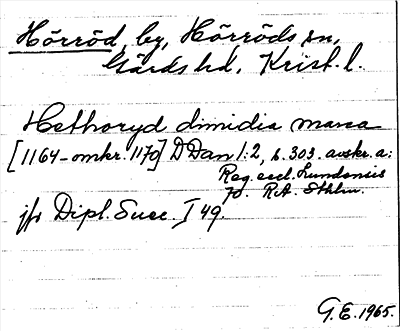 Hörröd, by, Hörröds sn,
Gärds hd, Krist. l.
Hethoryd dimidia marca
[1164-omkr. 1170] DDan 1:2, s. 303. avskr. a:
Reg. eccl. Lundensis
70. RA. Sthlm.
jfr Dipl. Suec. I 49.
G.E. 1965.